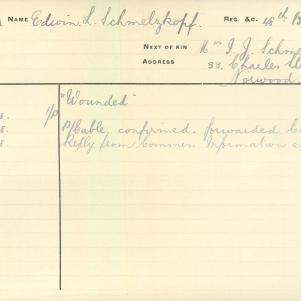 NAME Edwin. L. Schmelzkopf. REG. &C. 48th B
NEXT OF KIN Mrs I. J. Schm
ADDRESS 33. Charles St
Norwood
1/P "Wounded"
8. P/Cable, confirmed. forwarded
8. Reply from Commn. Information